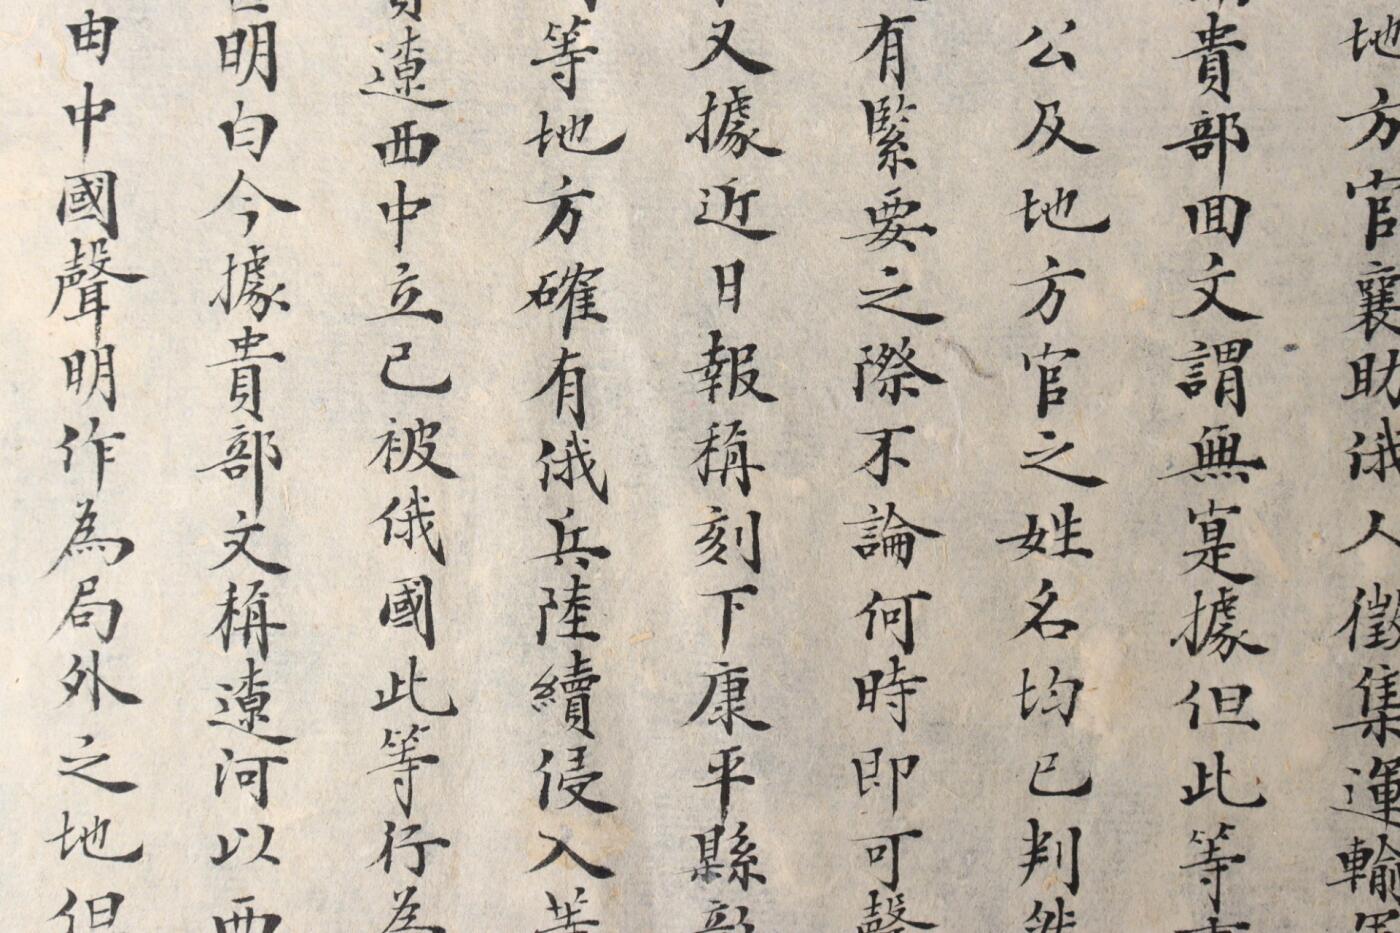 地方官襄助俄人徵集運輸
貴部回文謂無寔據但此等
公及地方官之姓名均已判然
有緊要之際不論何時即可聲
又據近日報稱刻下康平縣彰
等地方確有俄兵陸續侵入
遼西中立已被俄國此等行為
明白今據貴部文稱遼河以西
由中國聲明作為局外之地但